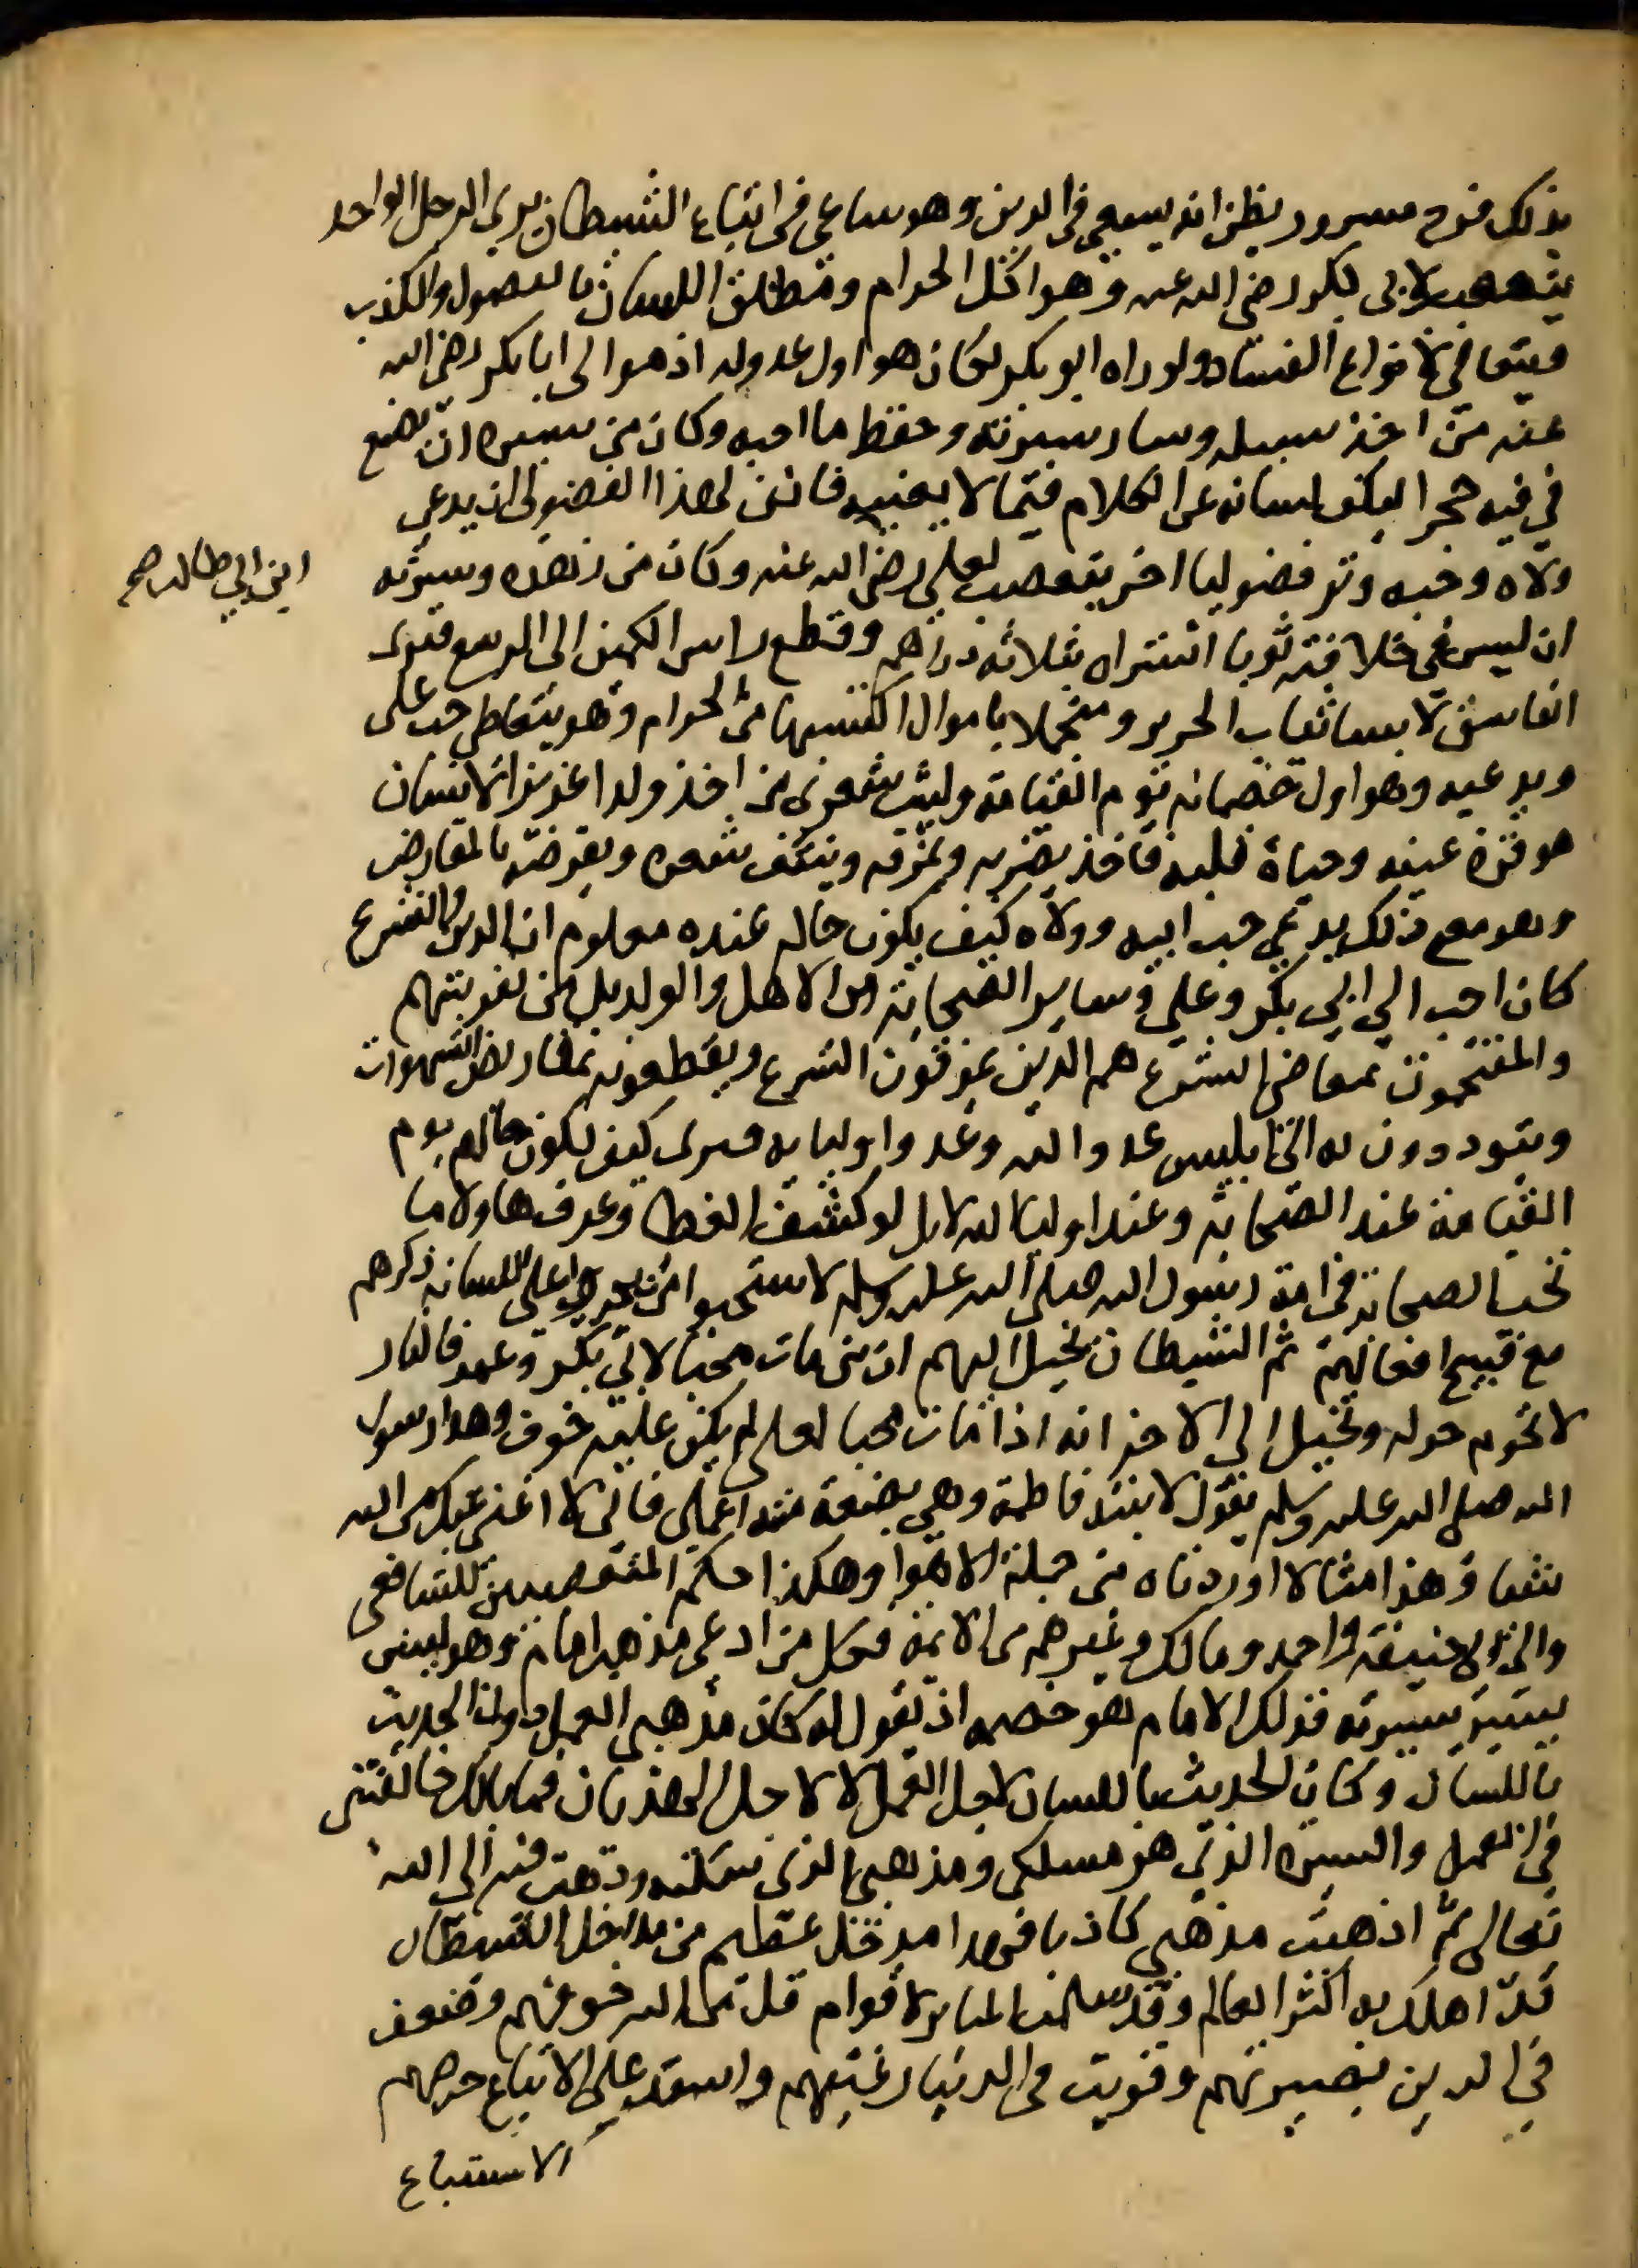 بذلك فرح مسرور يظن انه يسعي في الدين وهو ساعي في اتباع الشيطان يرى الرجل الواحد
يتعصب لابي بكر رضي الله عنه وهو اكل الحرام ومطلق اللسان بالفصول والكذب
ويتعاطي لانواع الفساد ولو راه ابو بكر لكان هو اول عدو له اذ موالى ابا بكر رضي الله
عنه من اخذ سبيله وسار سيرته وحفظ ما احبه وكان من سيره ان يضع
في فيه حجرا ليكف لسانه عن الكلام فيما لا يعنيه فانى لهذا الفضولي ان يدعي
ولاه وحبه وترى فضوليا اخر يتعصب لعلي رضي الله عنه وكان من زهده وسيرته
ابن ابي طالب صح
ان لبس في خلافته ثوبا اشتراه بثلاثه دراهم وقطع راس الكمين الى الرسع فنرى
الفاسق لابسا ثياب الحرير ومتجملا باموال اكتسبها من الحرام وهو يتعاطي حب علي
ويدعيه وهو اول خصمانه يوم القيامة وليت شعرى من اخذ ولدا عزيزا لانسان
هو قرة عينه وحياة قلبه فاخذ يضربه ويمزقه وينتف شعره ويقرضه بالمقارض
وهو مع ذلك يدعي حب ابيه وولاه كيف يكون حاله عنده معلوم ان الدين والشرع
كان احب الي ابي بكر وعلي وساير الصحابة من الاهل والولد بل من نفوسهم
والمقتحمون لمعاصي الشرع هم الذين يمزقون الشرع ويقطعونه بمقاريض الشهوات
ويتوددون به الى ابليس عدو الله وعدو اوليايه فترى كيف يكون حالهم يوم
القيامة عند الصحابة وعند اوليا الله لا بل لو كشف الغطا وعرف هاولا ما
تحب الصحابة في امة رسول الله صلى الله عليه وسلم لاستحيوا ان يجروا على اللسان ذكرهم
مع قبيح افعالهم ثم الشيطان يخيل اليهم ان من مات محبا لابي بكر وعمر فالنار
لا تحوم حوله ويخيل الى الاخر انه اذا مات محبا لعلي لم يكن عليه خوف وهذا رسول
الله صلى الله عليه وسلم يقول لابنته فاطمة وهي بضعة منه اعملي فاني لا اغني عنك من الله
شيا وهذا مثالا اوردناه من جملة الاهوا وهكذا حكم المتعصبين للشافعي
والى ابي حنيفة واحمد ومالك وغيرهم من الايمة فكل من ادعى مذهب امام وهو ليس
يسير بسيرته فذلك الامام هو خصمه اذ يقول له كان مذهبي العمل دون الحديث
باللسان وكان الحديث باللسان لاجل العمل لا لاجل الهذيان فما بالك خالفتنى
في العمل والسيرة الذي هو مسلكي ومذهبي الذي سلكته وذهبت فيه الى الله
تعالى ثم اذهبت مذهبي كاذبا فهذا مدخل عظيم من مداخل الشيطان
قد اهلك به اكثر العالم وقد سلمت المنابر لاقوام قل من الله خوفهم وضعف
في الدين بصيرتهم وقويت في الدنيا رغبتهم واستد على الاتباع حرصهم
الاستتباع